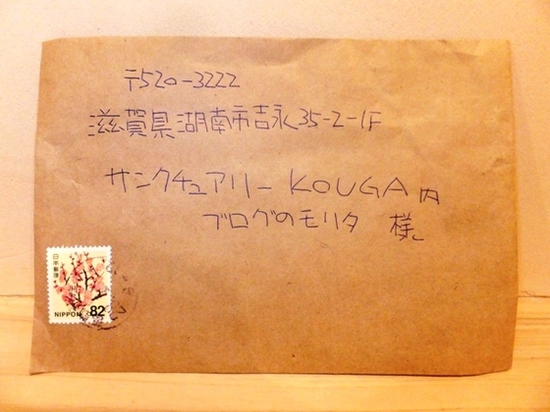 〒520-3222
滋賀県湖南市吉永35-2-1F
サンクチュアリー KOUGA内
ブログのモリタ 様
日本郵便
NIPPON 82